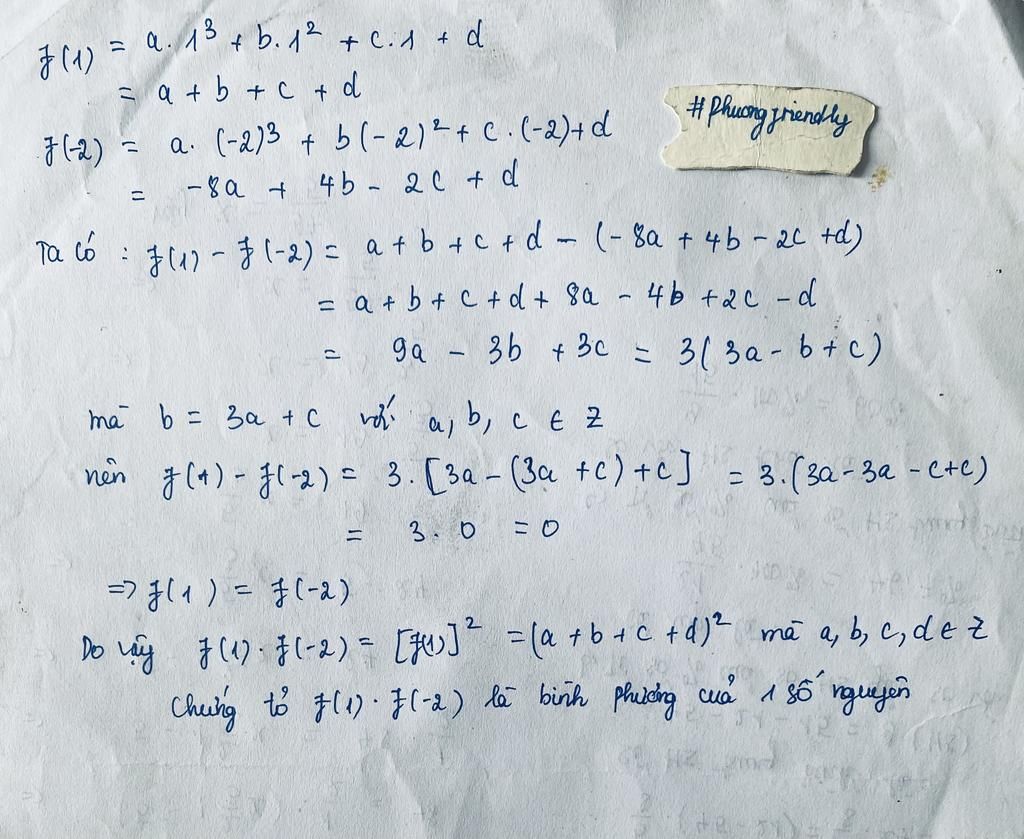 f(1) = a. 1³ + b. 1² + c. 1 + d
= a + b + c + d
#Phuongfriendly
f(-2) = a. (-2)³ + b(-2)² + c. (-2) + d
= -8a + 4b - 2c + d
Ta có : f(1) - f(-2) = a + b + c + d - (-8a + 4b - 2c + d)
= a + b + c + d + 8a - 4b + 2c - d
= 9a - 3b + 3c = 3(3a - b + c)
mà b = 3a + c với a, b, c ∈ Z
nên f(1) - f(-2) = 3. [3a - (3a + c) + c] = 3. (3a - 3a - c + c)
= 3. 0 = 0
=> f(1) = f(-2)
Do vậy f(1). f(-2) = [f(1)]² = (a + b + c + d)² mà a, b, c, d ∈ Z
Chứng tỏ f(1). f(-2) là bình phương của 1 số nguyên